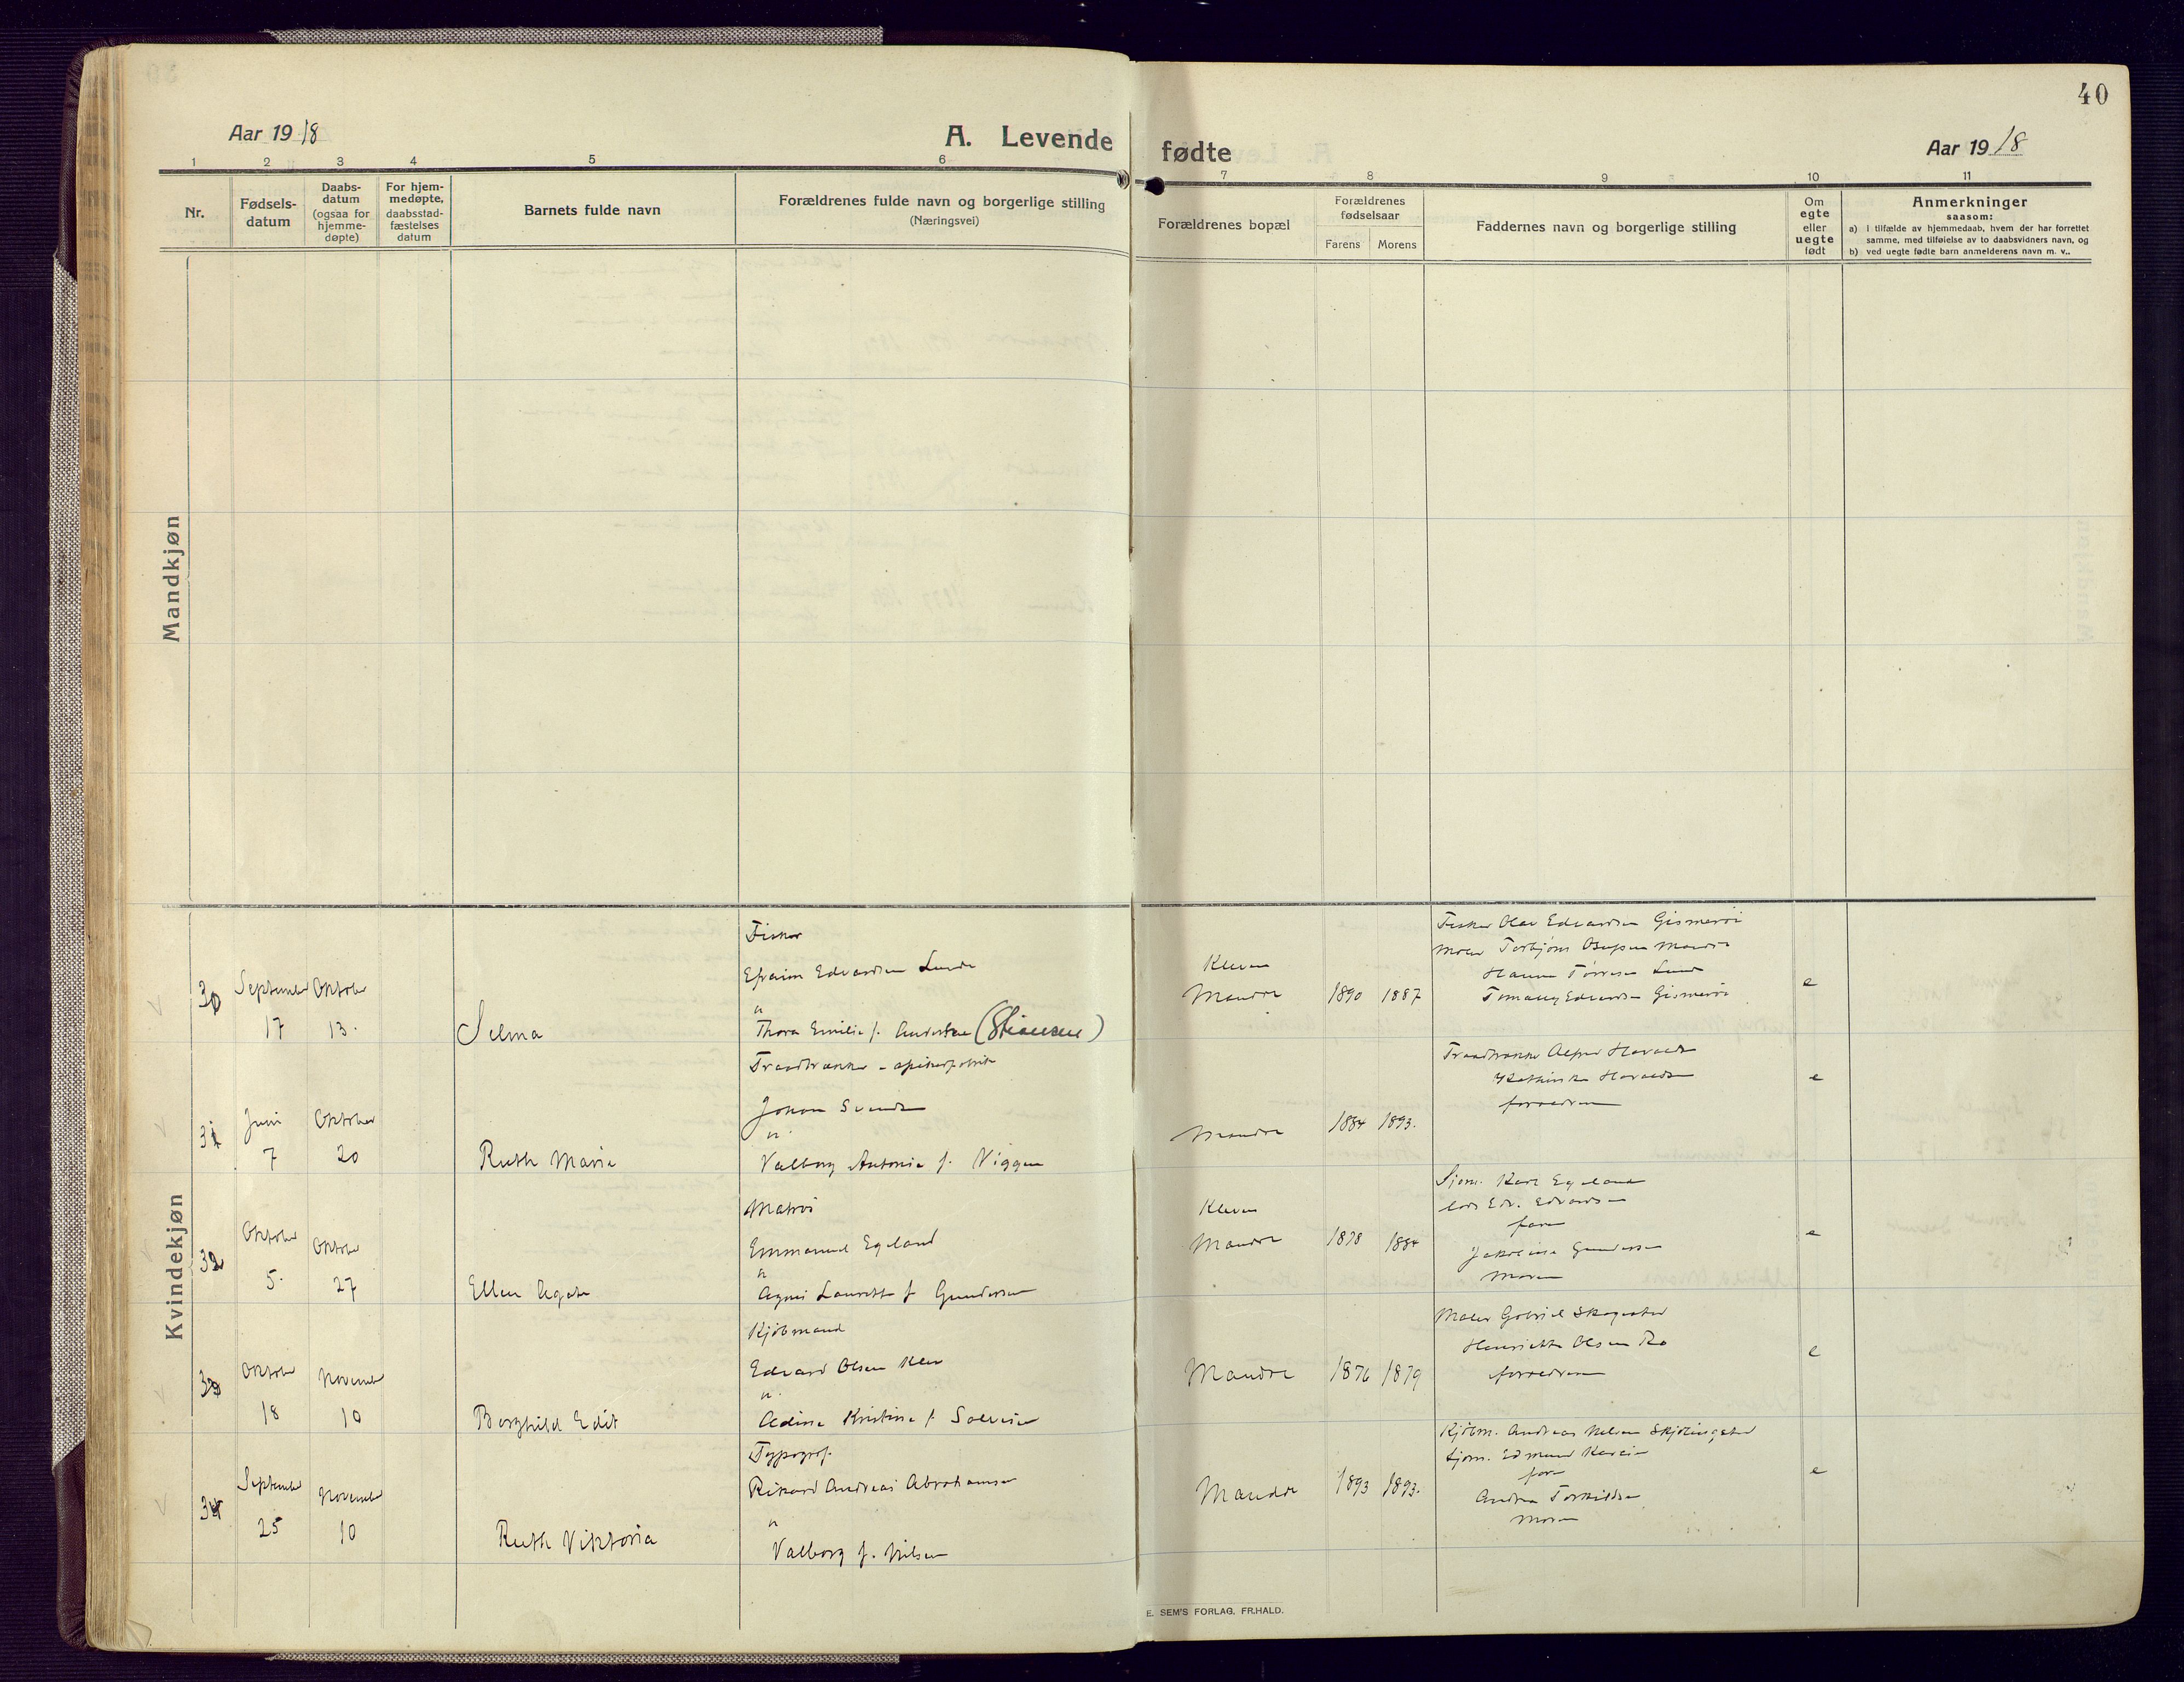 40
Aar 1918
A. Levende fødte
Aar 1918
1 2 3 4 5 6 7 8 9 10 11
Nr.
Fødsels-
datum
Daabs-
datum
(ogsaa for
hjemme-
døpte)
For hjem-
medøpte,
daabsstad-
fæstelses
datum
Barnets fulde navn
Forældrenes fulde navn og borgerlige stilling
(Næringsvei)
Forældrenes bopæl
Forældrenes
fødselsaar
Farens Morens
Faddernes navn og borgerlige stilling
Om
egte
eller
uegte
født
Anmerkninger
saasom:
a) I tilfælde av hjemmedaab, hvem der har forrettet
samme, med tilføielse av to daabsvidners navn, og
b) ved uegte fødte barn anmelderens navn m. v..
Mandkjøn
Kvindekjøn
30
September
17
Oktober
13.
Selma
Fisker
Efraim Edvardsen Lunde
Thora Emilie f. Andersen
Kleven
Mandal
1890 1887
Fisker Olav Edvardsen Gismerøi
Hanna Tørresen Lund
Edvardsen Gismerøi
e
31
Juni
7
Oktober
20
Ruth Marie
Johan Svendsen
Valborg Antonie f. Viggen
Mandal
1884 1893.
forældrene
e
32
Oktober
5.
Oktober
27
Ellen Agate
Matros
Emmanuel Egeland
Agnes Laurette f Gundersen
Kleven
Mandal
1878 1884
Sjøm. Karl Egeland
Edvardsen
faren
Gundersen
Moren
e
33
Oktober
18
November
10
Borghild Edit
Kjøbmand
Edvard Olsen Klev
Kristine f.
Mandal
1876 1879
Maler Gabriel Skogsfjord
Henriette Olsen
forældrene
e
34
September
25
November
10
Ruth Viktoria
Typograf.
Rikard Andreas Abrahamsen
Valborg f. Nilsen
Mandal
1893 1893.
Kjøbm. Andreas Nelsen
Sjøm. Edmund
faren
Andrea Torkildsen
Moren
e
E. SEM'S FORLAG, FR.HALD.